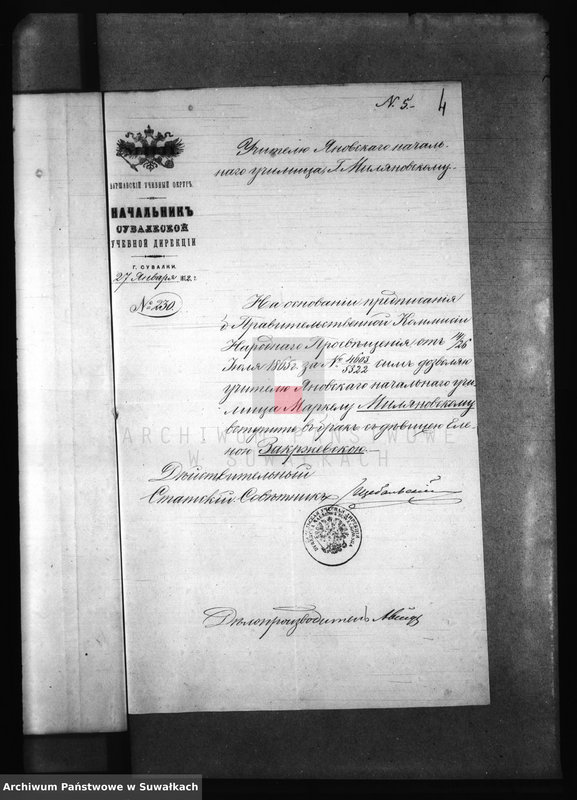 N. 5.
4
Учителю Яновскаго началь-
наго училища, Г. Миляновскому.
ВАРШАВСКІЙ УЧЕБНЫЙ ОКРУГЪ.
НАЧАЛЬНИКЪ
СУВАЛКСКОЙ
УЧЕБНОЙ ДИРЕКЦІИ
Г. СУВАЛКИ.
27 Января
№ 230.
На основаніи предписанія
Правительственной Коммисіи
Народнаго Просвѣщенія отъ 14/26
Іюля 1865 г. за № 4603/5322 симъ дозволяю
учителю Яновскаго начальнаго учи-
лища Маркелу Миляновскому
вступить въ бракъ съ дѣвицею Еле-
ною Закржевскою.
ARCHIWUM PAŃSTWOWE
W SUWAŁKACH
Дѣйствительный
Статскій Совѣтникъ
Дѣлопроизводитель
Archiwum Państwowe w Suwałkach